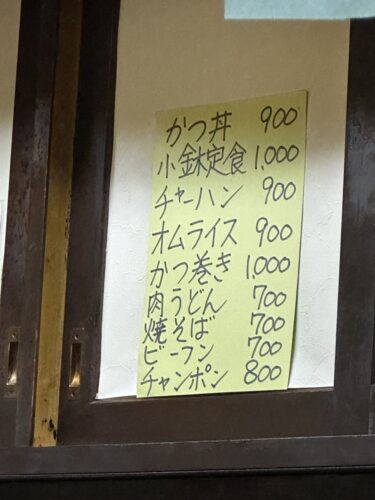 かつ丼 900
小鉢定食 1,000
チャーハン 900
オムライス 900
かつ巻き 1,000
肉うどん 700
焼そば 700
ビーフン 700
チャンポン 800